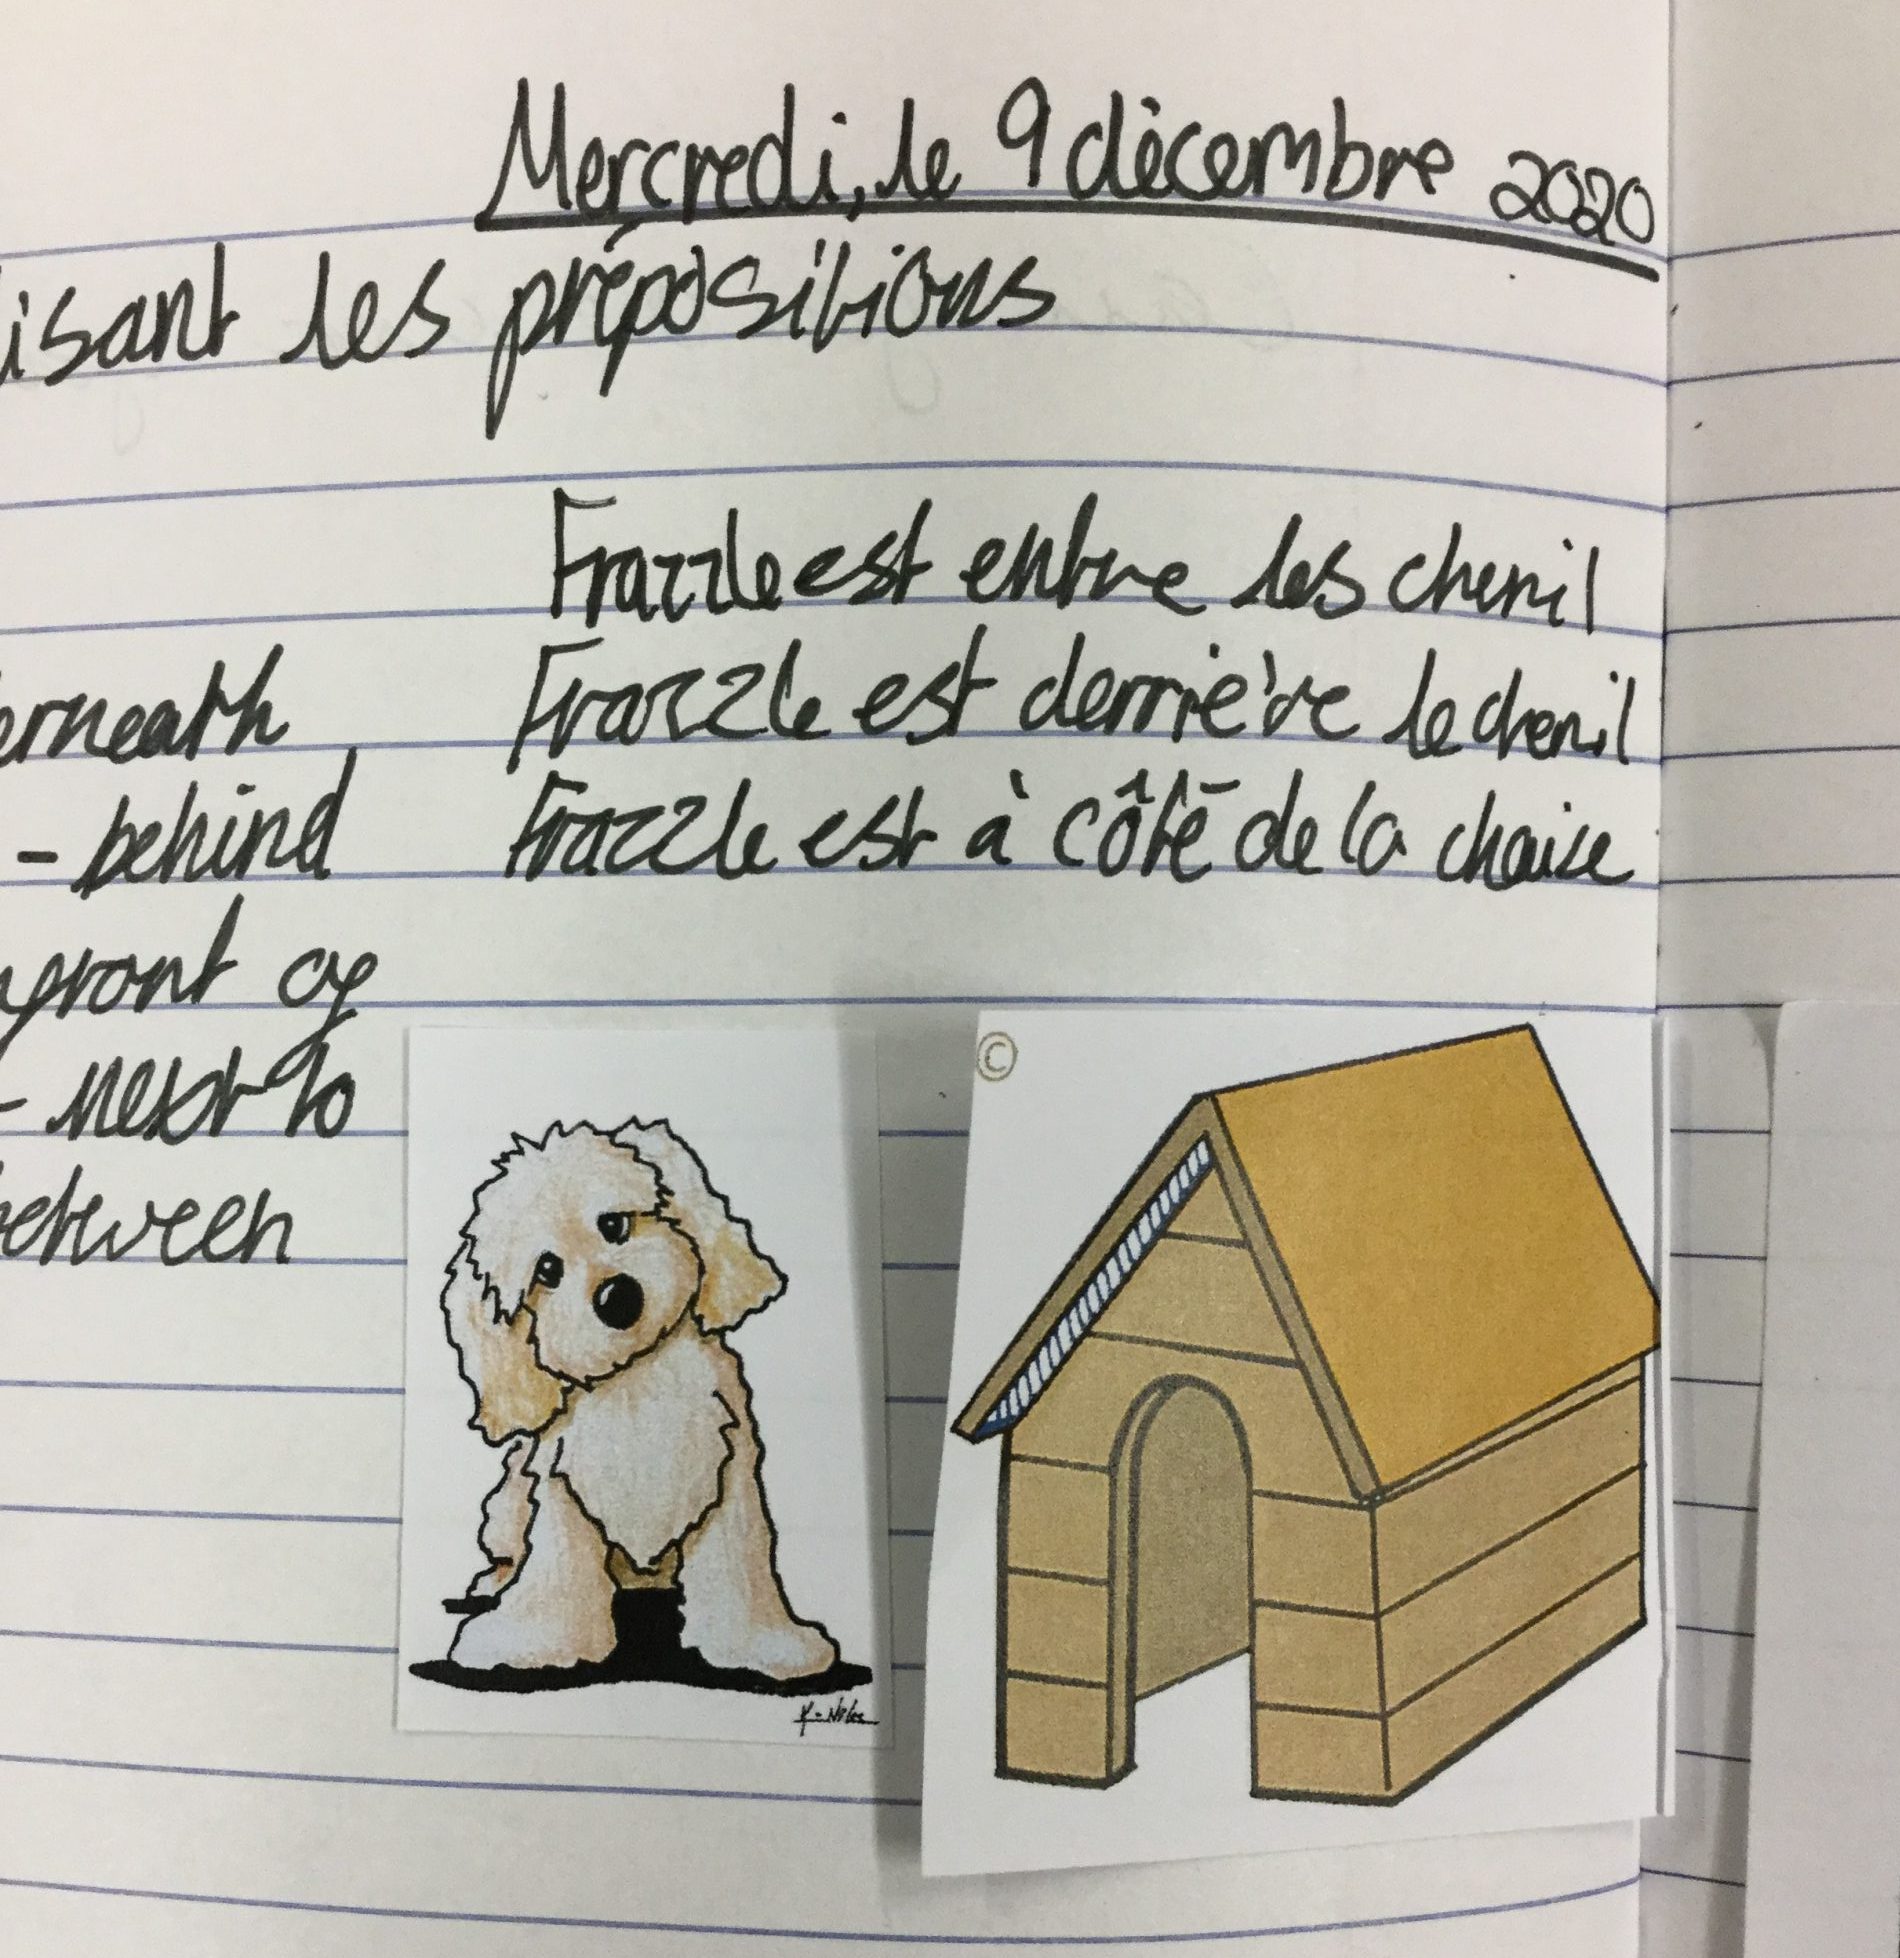 Mercredi, le 9 décembre 2020
isant les prépositions
Frazzle est entre les chenil
erneath Frazzle est derrière le chenil
- behind Frazzle est à côté de la chaise
front of
- next to
between
©